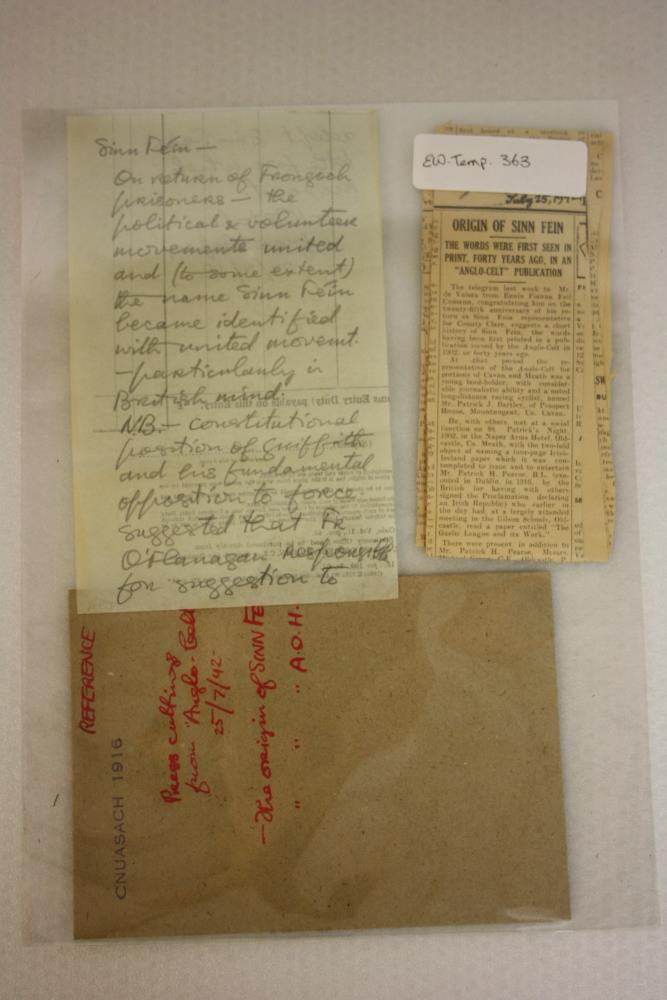 Sinn Féin —
On return of Frongoch
prisoners — the
political & volunteer
movements united
and (to some extent)
the name Sinn Féin
became identified
with united movemt.
— particularly in
British mind.
N.B. — constitutional
position of Griffith
and his fundamental
opposition to force.
Suggested that Fr
O'Flanagan responsible
for suggestion to
EW. Temp. 363
July 25,
ORIGIN OF SINN FEIN
THE WORDS WERE FIRST SEEN IN
PRINT, FORTY YEARS AGO, IN AN
"ANGLO-CELT" PUBLICATION
The telegram last week to Mr.
de Valera from Ennis Fianna Fail
Cumann, congratulating him on the
twenty-fifth anniversary of his re-
turn as Sinn Fein representative
for County Clare, suggests a short
history of Sinn Fein, the words
having been first printed in a pub-
lication issued by the Anglo-Celt in
1902, or forty years ago.
At that period the re-
presentative of the Anglo-Celt for
portions of Cavan and Meath was a
young land-holder, with consider-
able journalistic ability and a noted
long-distance racing cyclist, named
Mr. Patrick J. Bartley, of Prospect
House, Mountnugent, Co. Cavan.
He, with others, met at a social
function on St. Patrick's Night,
1902, in the Naper Arms Hotel, Old-
castle, Co. Meath, with the two-fold
object of naming a four-page Irish-
Ireland paper which it was con-
templated to issue and to entertain
Mr. Patrick H. Pearse, B.L. (exe-
cuted in Dublin, in 1916, by the
British for having with others
signed the Proclamation declaring
an Irish Republic) who earlier in
the day had, at a largely attended
meeting in the Gilson Schools, Old-
castle, read a paper entitled "The
Gaelic League and its Work."
There were present in addition to
Mr. Patrick H. Pearse, Messrs.
REFERENCE
CNUASACH 1916
Press cutting
from "Anglo-Celt
25/7/42-
— The origin of SINN FE
" " " A.O.H.